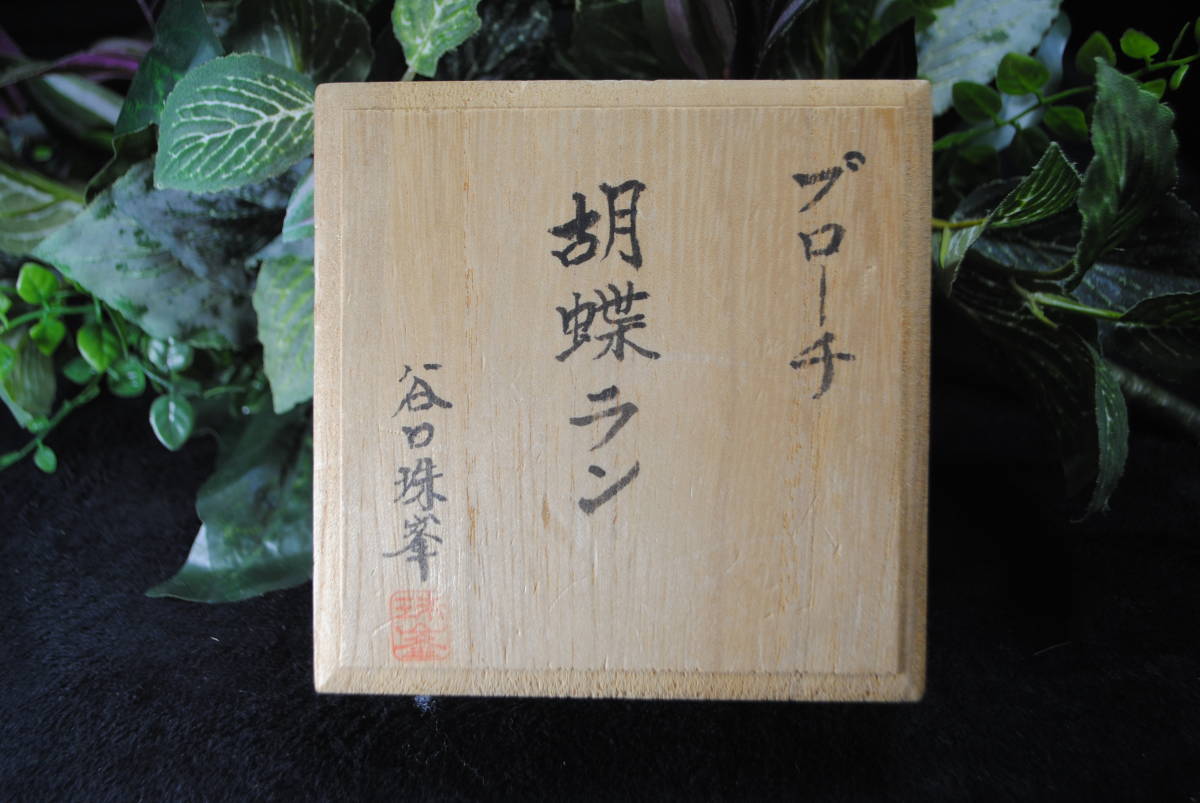 ブローチ
胡蝶ラン
谷口珠峯